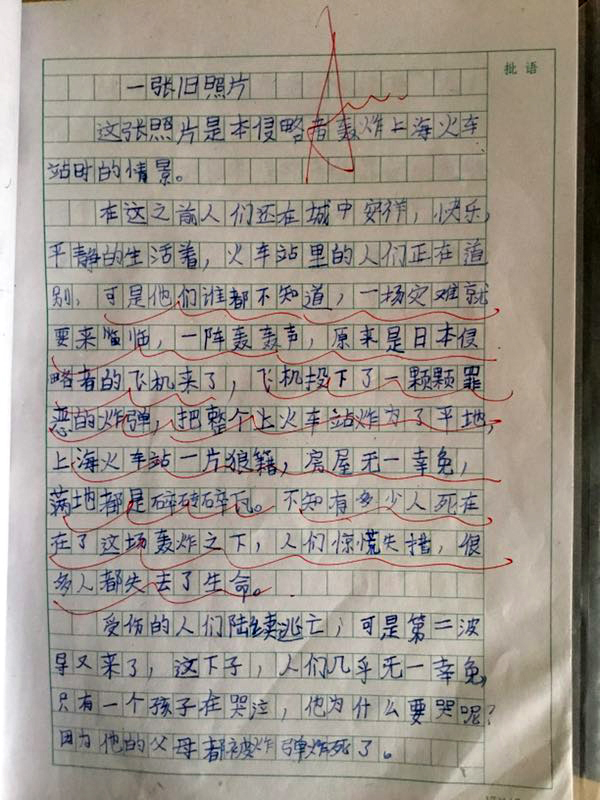 批语
一张旧照片
这张照片是本侵略者轰炸上海火车
站时的情景。
在这之前人们还在城中安详，快乐，
平静的生活着，火车站里的人们正在道
别，可是他们谁都不知道，一场灾难就
要来临临，一阵轰轰声，原来是日本侵
略者的飞机来了，飞机投下了一颗颗罪
恶的炸弹，把整个上火车站炸为了平地，
上海火车站一片狼籍，房屋无一幸免，
满地都是碎砖碎瓦。不知有多少人死在
在了这场轰炸之下，人们惊慌失措，很
多人都失去了生命。
受伤的人们陆续逃亡，可是第二波
又来了，这下子，人们几乎无一幸免，
只有一个孩子在哭泣，他为什么要哭呢？
因为他的父母都被炸弹炸死了。